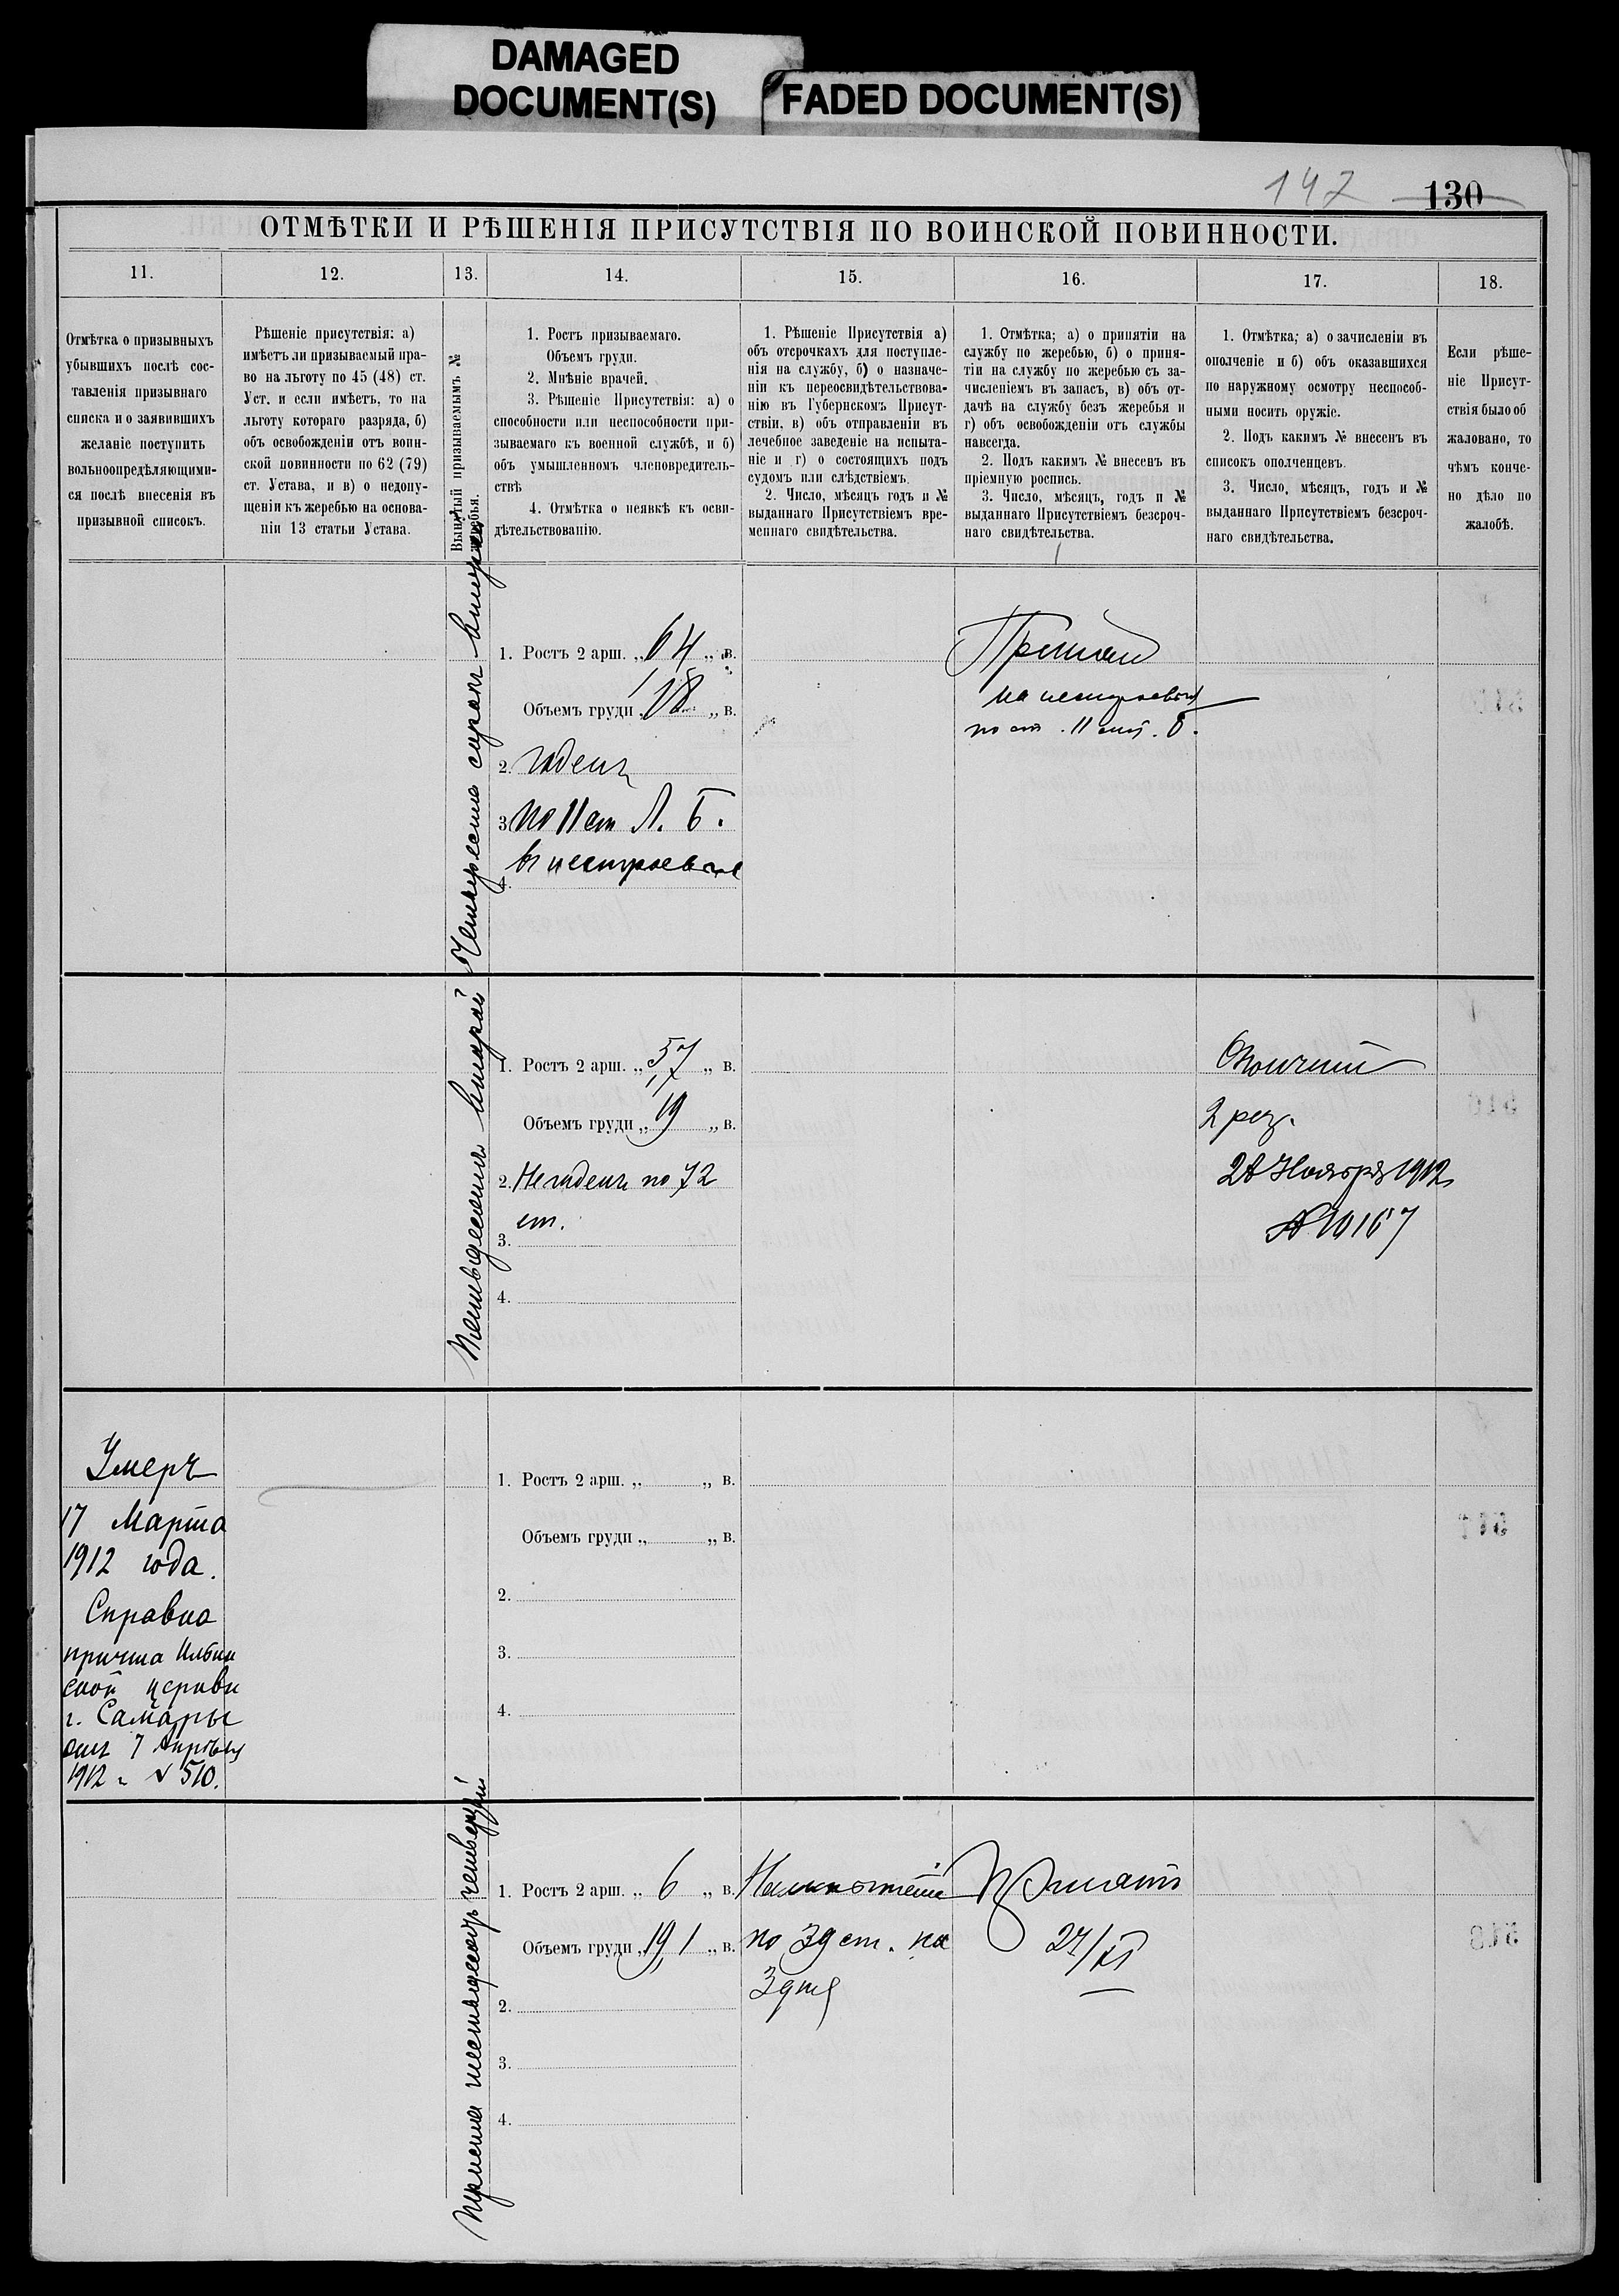 DAMAGED
DOCUMENT(S)
FADED DOCUMENT(S)
147 130
ОТМѢТКИ И РѢШЕНІЯ ПРИСУТСТВІЯ ПО ВОИНСКОЙ ПОВИННОСТИ.
11.
12.
13.
14.
15.
16.
17.
18.
Отмѣтка о призывныхъ
убывшихъ послѣ сос-
тавленія призывнаго
списка и о заявившихъ
желаніе поступить
вольноопредѣляющими-
ся послѣ внесенія въ
призывной списокъ.
Рѣшеніе присутствія: а)
имѣетъ ли призываемый пра-
во на льготу по 45 (48) ст.
Уст. и если имѣетъ, то на
льготу котораго разряда, б)
объ освобожденіи отъ воин-
ской повинности по 62 (79)
ст. Устава, и в) о недопу-
щеніи къ жеребью на основа-
ніи 13 статьи Устава.
Вынутый призываемымъ №
жеребья.
1. Ростъ призываемаго.
Объемъ груди.
2. Мнѣніе врачей.
3. Рѣшеніе Присутствія: а) о
способности или неспособности при-
зываемаго къ военной службѣ, и б)
объ умышленномъ членовредитель-
ствѣ
4. Отмѣтка о неявкѣ къ осви-
дѣтельствованію.
1. Рѣшеніе Присутствія а)
объ отсрочкахъ для поступле-
нія на службу, б) о назначе-
ніи къ переосвидѣтельствова-
нію въ Губернскомъ Присут-
ствіи, в) объ отправленіи въ
лечебное заведеніе на испыта-
ніе и г) о состоящихъ подъ
судомъ или слѣдствіемъ.
2. Число, мѣсяцъ годъ и №
выданнаго Присутствіемъ вре-
меннаго свидѣтельства.
1. Отмѣтка; а) о принятіи на
службу по жеребью, б) о приня-
тіи на службу по жеребью съ за-
численіемъ въ запасъ, в) объ от-
дачѣ на службу безъ жеребья и
г) объ освобожденіи отъ службы
навсегда.
2. Подъ какимъ № внесенъ въ
пріемную роспись.
3. Число, мѣсяцъ, годъ и №
выданнаго Присутствіемъ безсроч-
наго свидѣтельства.
1. Отмѣтка; а) о зачисленіи въ
ополченіе и б) объ оказавшихся
по наружному осмотру неспособ-
ными носить оружіе.
2. Подъ какимъ № внесенъ въ
списокъ ополченцевъ.
3. Число, мѣсяцъ, годъ и №
выданнаго Присутствіемъ безсроч-
наго свидѣтельства.
Если рѣше-
ніе Присут-
ствія было об
жаловано, то
чѣмъ конче-
но дѣло по
жалобѣ.
Четыреста сорокъ второй
1. Ростъ 2 арш. „ 6 4 „ в.
Объемъ груди „ 18 „ в.
2. годенъ
3. по 11 ст Л. Б.
4. въ нестроевые
Принятъ
на нестроевую
по ст. 11 лит. Б.
Пятьдесятъ второй
1. Ростъ 2 арш. „ 5,7 „ в.
Объемъ груди „ 19 „ в.
2. Негоденъ по 72
ст.
3.
4.
Ополченіе
2 раз.
28 Ноября 1912
№ 10167
Умеръ
17 Марта
1912 года.
Справка
причта Ильин
ской церкви
г. Самары
отъ 7 Апрѣля
1912 г. № 510.
1. Ростъ 2 арш. „ „ в.
Объемъ груди „ „ в.
2.
3.
4.
Триста шестьдесятъ четвертый
1. Ростъ 2 арш. „ 6 „ в.
Объемъ груди „ 19,1 „ в.
2.
3.
4.
по 39 ст. на
3 дня
Принятъ
27/XI